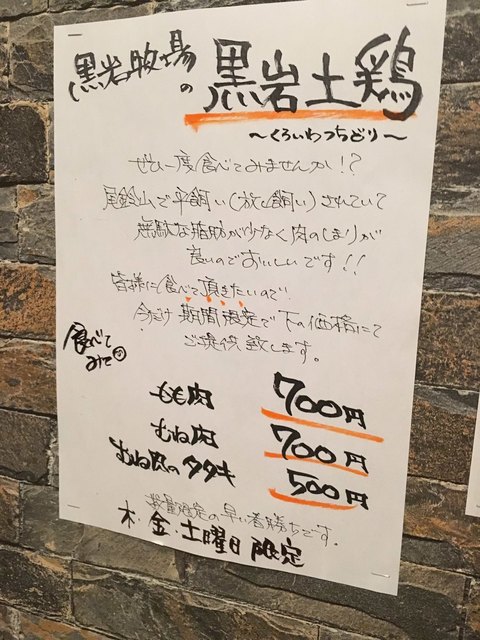 黒岩牧場の黒岩土鶏
～くろいわつちどり～
ぜひ一度食べてみませんか!?
尾鈴山で平飼い(放し飼い)されていて
無駄な脂肪が少なく肉のしまりが
良いのでおいしいです!!
皆様に食べて頂きたいので
今だけ期間限定で下の価格にて
ご提供致します。
食べてみて
もも肉 700円
むね肉 700円
むね肉のタタキ 500円
数量限定の早い者勝ちです。
木・金・土曜日限定